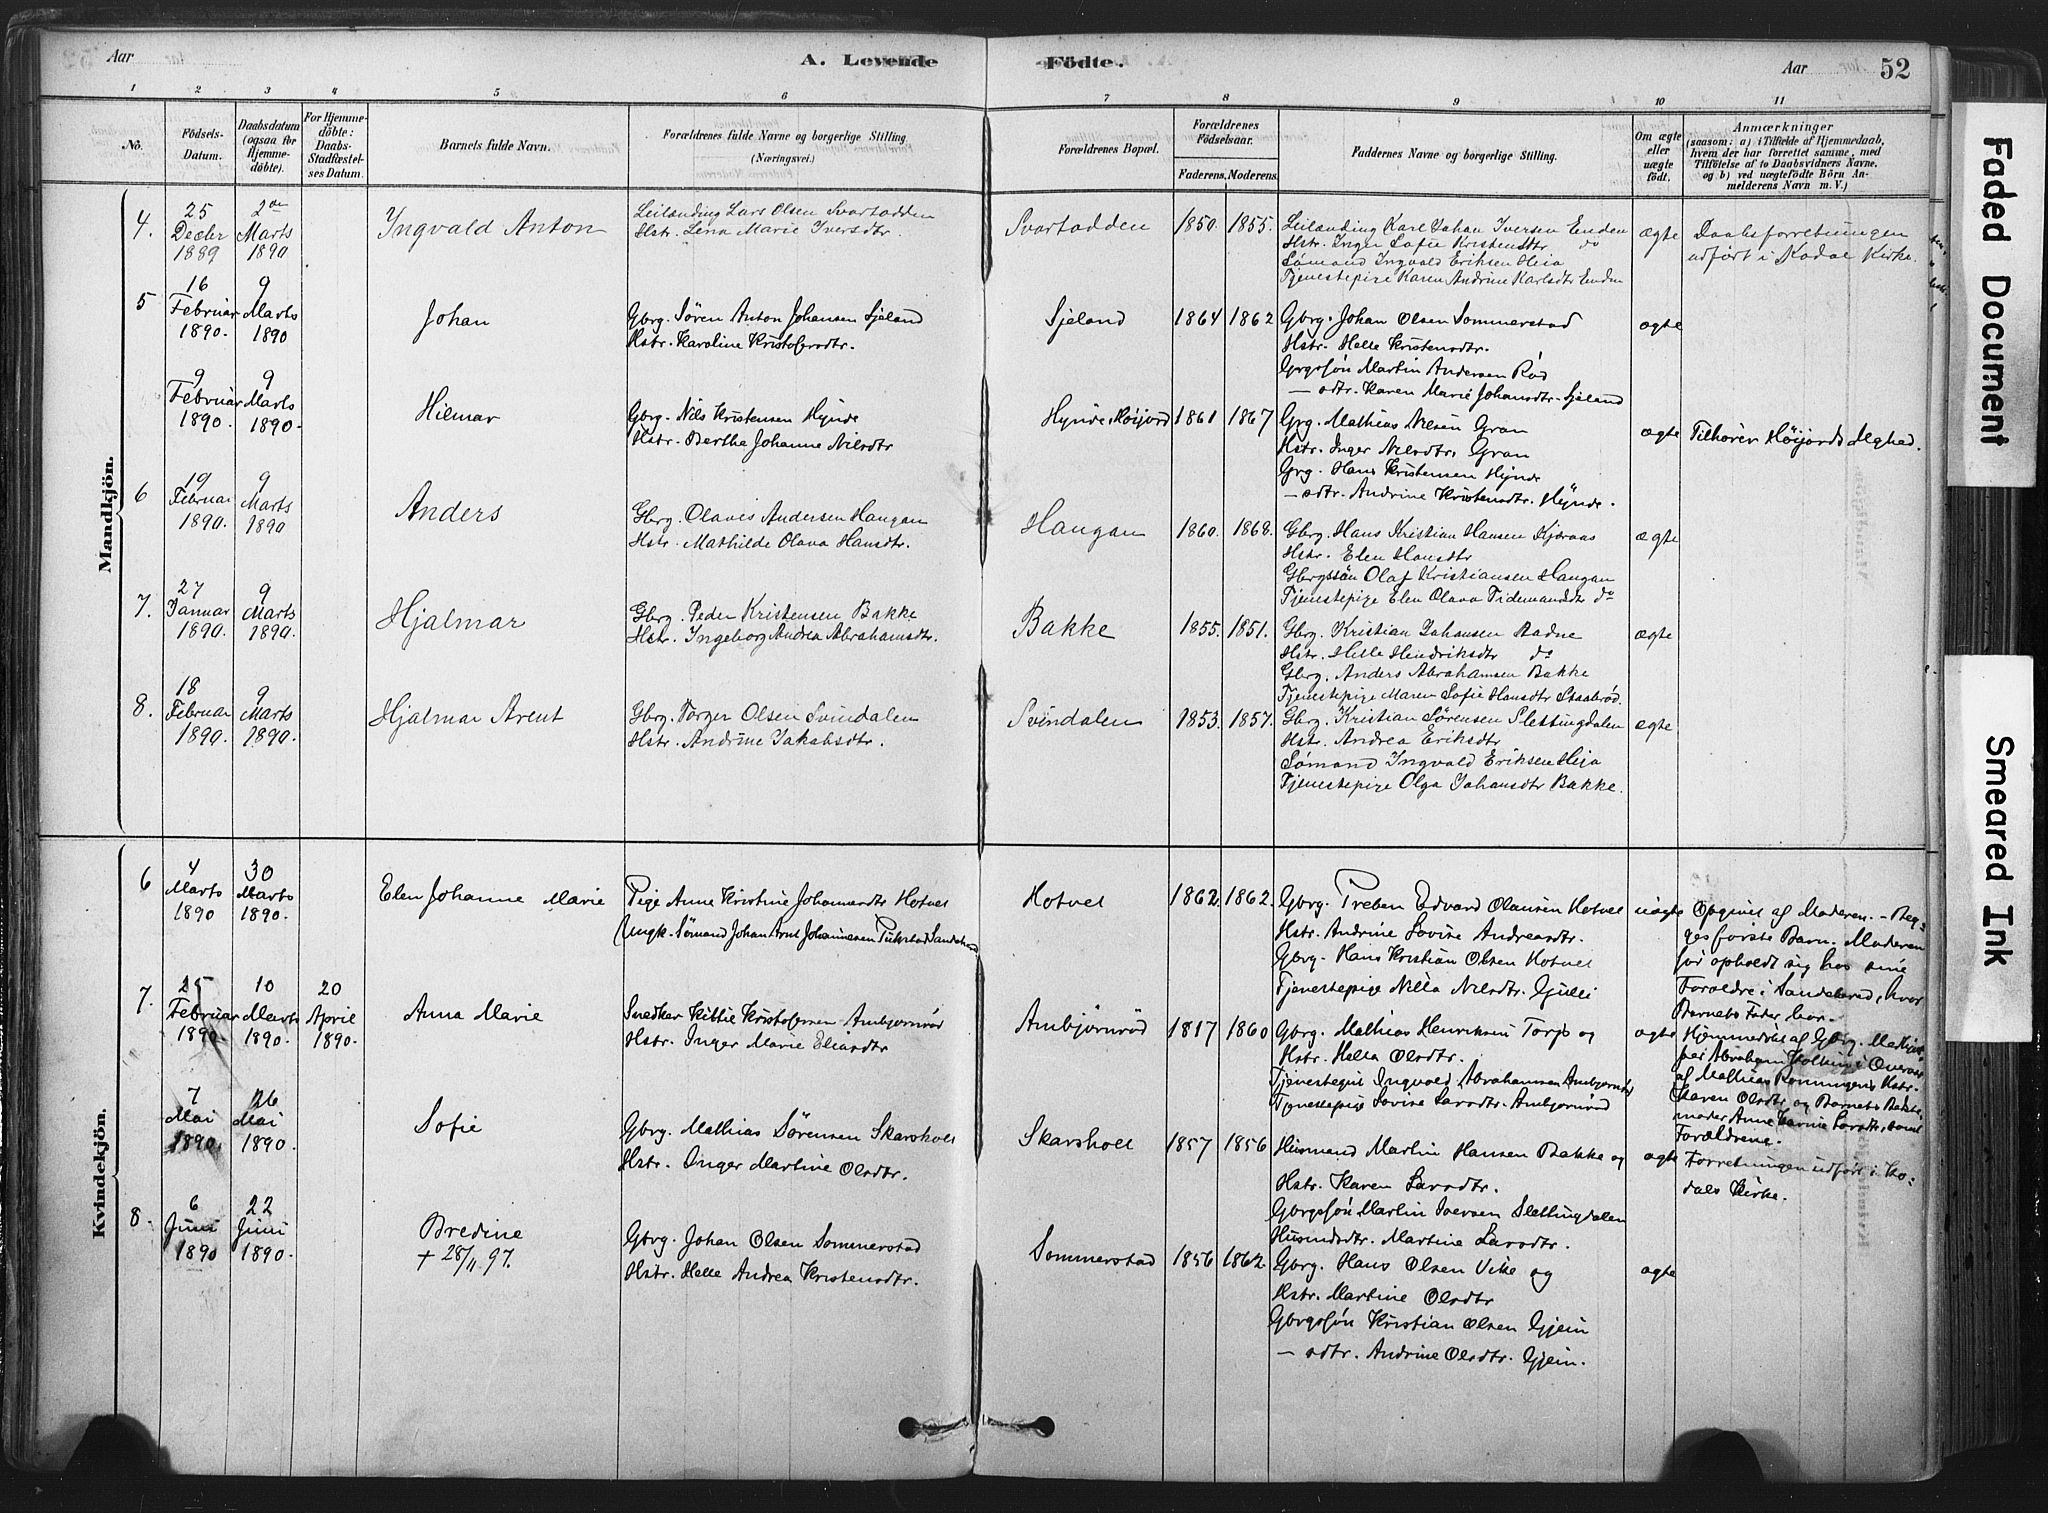 Aar
A. Levende
Födte.
Aar
52
1 2 3 4 5 6 7 8 9 10 11
No.
Födsels-
Datum.
Daabsdatum
(ogsaa for
Hjemme-
döbte).
For Hjemme-
döbte:
Daabs-
Stadfæstel-
ses Datum.
Barnets fulde Navn.
Forældrenes fulde Navne og borgerlige Stilling
(Næringsvei.)
Forældrenes Bopæl.
Forældrenes
Födselsaar.
Faderens. Moderens.
Faddernes Navne og borgerlige Stilling.
Om ægte
eller
uægte
födt.
Anmærkninger
(saasom: a) i Tilfælde af Hjemmedaab,
hvem der har forrettet samme, med
Tilföielse af to Daabsvidners Navne,
og b) ved uægtefödte Börn An-
melderens Navn m. V.)
Mandkjön.
4.
25
Decbr
1889
2den
Marts
1890
Ingvald Anton
Leilænding Lars Olsen Svartadden
Hstr. Lena Marie Iversdtr.
Svartadden
1850. 1855.
Leilænding Karl Johan Iversen Enden
Hstr. Inger Sofie Kristensdtr do
Sømand Ingvald Eriksen Heia
Tjenestepige Karen Andrine Karlsdtr Enden
ægte
Daabsforretningen
udført i Kodal Kirke.
5
16
Februar
1890.
9
Marts
1890
Johan
Gbrg. Sören Anton Johansen Sjeland
Hstr. Karoline Kristofersdtr.
Sjeland
1864 1862
Gbrg. Johan Olsen Sommerstad
Hstr. Helle Kristensdtr.
Grgssön Martin Andersen Röd
— sdtr. Karen Marie Johansdtr. Sjeland
ægte
9
Februar
1890.
9
Marts
1890.
Hilmar
Gbrg. Nils Kristensen Hynde
Hstr. Berthe Johanne Nilsdtr
Hynde, Höijord
1861 1867
Grg. Mathias Nilsen Gran
Hstr. Inger Nilsdtr. Gran
Grg. Hans Kristensen Hynde
— sdtr. Andrine Kristensdtr. Hynde.
ægte
Tilhörer Höijords Mghed.
6
19
Februar
1890.
9
Marts
1890
Anders
Gbrg. Olavis Andersen Haugan
Hstr. Mathilde Olava Hansdtr.
Haugan
1860. 1868.
Gbrg. Hans Kristian Hansen Kjæraas
Hstr. Elen Hansdtr
Gbrgssön Olaf Kristiansen Haugan
Tjenestepige Elen Olava Tidemandsdtr do
ægte
7.
27
Januar
1890.
9
Marts
1890.
Hjalmar
Gbrg. Peder Kristensen Bakke
Hstr. Ingeborg Andrea Abrahamsdtr.
Bakke
1855. 1851.
Gbrg. Kristian Johansen Aadne
Hstr. Helle Hendriksdtr do
Gbrg. Anders Abrahamsen Bakke
Tjenestepige Maren Sofie Hansdtr Skaabröd.
ægte
8.
18
Februar
1890.
9
Marts
1890.
Hjalmar Arent
Gbrg. Torger Olsen Svindalen
Hstr. Andrine Jakobsdtr.
Svindalen
1853. 1857.
Gbrg. Kristian Sørensen Slettingdalen
Hstr. Andrea Eriksdtr
Sømand Ingvald Eriksen Heia
Tjenestepige Olga Johansdtr Bakke.
ægte
Kvindekjön.
6
4
Marts
1890
30
Marts
1890.
Elen Johanne Marie
Pige Anne Kristine Johannesdtr Hotvet
Ungk. Sömand Johan Arnt Johannesen Pukstad Sandeherred
Hotvet
1862. 1862.
Gbrg. Preben Edvard Olausen Hotvet
Hstr. Andrine Lovise Andreasdtr.
Gbrg. Hans Kristian Olsen Hotvet
Tjenestepige Nilla Nilsdtr. Gjulli
uægte
Opgivet af Moderen. – Beg-
ges förste Barn. Moderen
før opholdt sig hos sine
Foreldre i Sandeherred, hvor
Barnets Fader bor.
7.
25
Februar
1890.
10
Marts
1890.
20
April
1890.
Anna Marie
Snedker Kittil Kristofersen Ambjörnröd
Hstr. Inger Marie Eliasdtr
Ambjörnröd
1817 1860
Gbrg. Mathias Henriksen Torp og
Hstr. Helle Olsdtr.
Tjenestegut Ingvald Abrahamsen Ambjörnröd
Tjenestepige Lovise Larsdtr. Ambjörnröd
ægte
Hjemmedöbt af Gbrg. Mathias
af Mathias Rönningens Hstr.
Karen Olsdtr og Barnets Beste
moder Anne Karine Larsdtr. samt
Forældrene.
7
Mai
1890.
26
Mai
1890
Sofie
Gbrg. Mathias Sörensen Skarsholt
Hstr. Inger Martine Olsdtr.
Skarsholt
1857 1856
Husmand Martin Hansen Bakke og
Hstr. Karen Larsdtr.
Gbrgssön Martin Iversen Slettingdalen
Husmdsdtr. Martine Larsdtr.
ægte
Forretningen udført i Ko-
dals Kirke.
8.
6
Juni
1890
22
Juni
1890.
Bredine
+ 28/11 97.
Gbrg. Johan Olsen Sommerstad
Hstr. Helle Andrea Kristensdtr.
Sommerstad
1856 1862
Gbrg. Hans Olsen Vike og
Hstr. Martine Olsdtr
Gbrgssön Kristian Olsen Gjein
— sdtr. Andrine Olsdtr. Gjein.
ægte
Faded Document
Smeared Ink